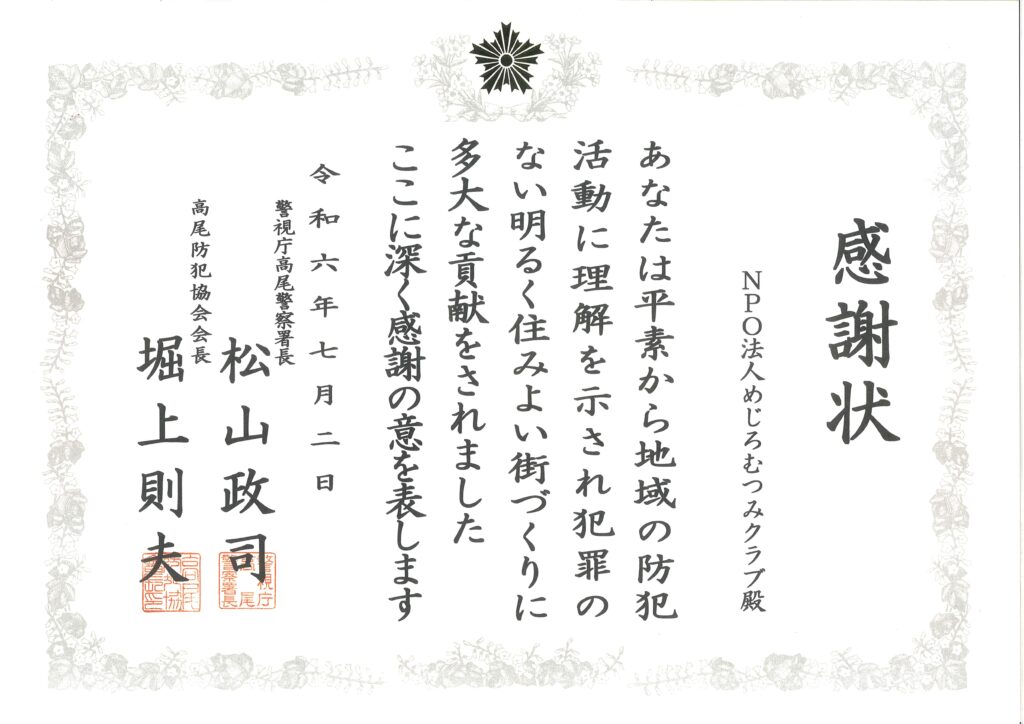 感謝状
NPO法人めじろむつみクラブ殿
あなたは平素から地域の防犯
活動に理解を示され犯罪の
ない明るく住みよい街づくりに
多大な貢献をされました
ここに深く感謝の意を表します
令和六年七月二日
警視庁高尾警察署長
松山政司
警視庁
高尾
警察署長
高尾防犯協会会長
堀上則夫